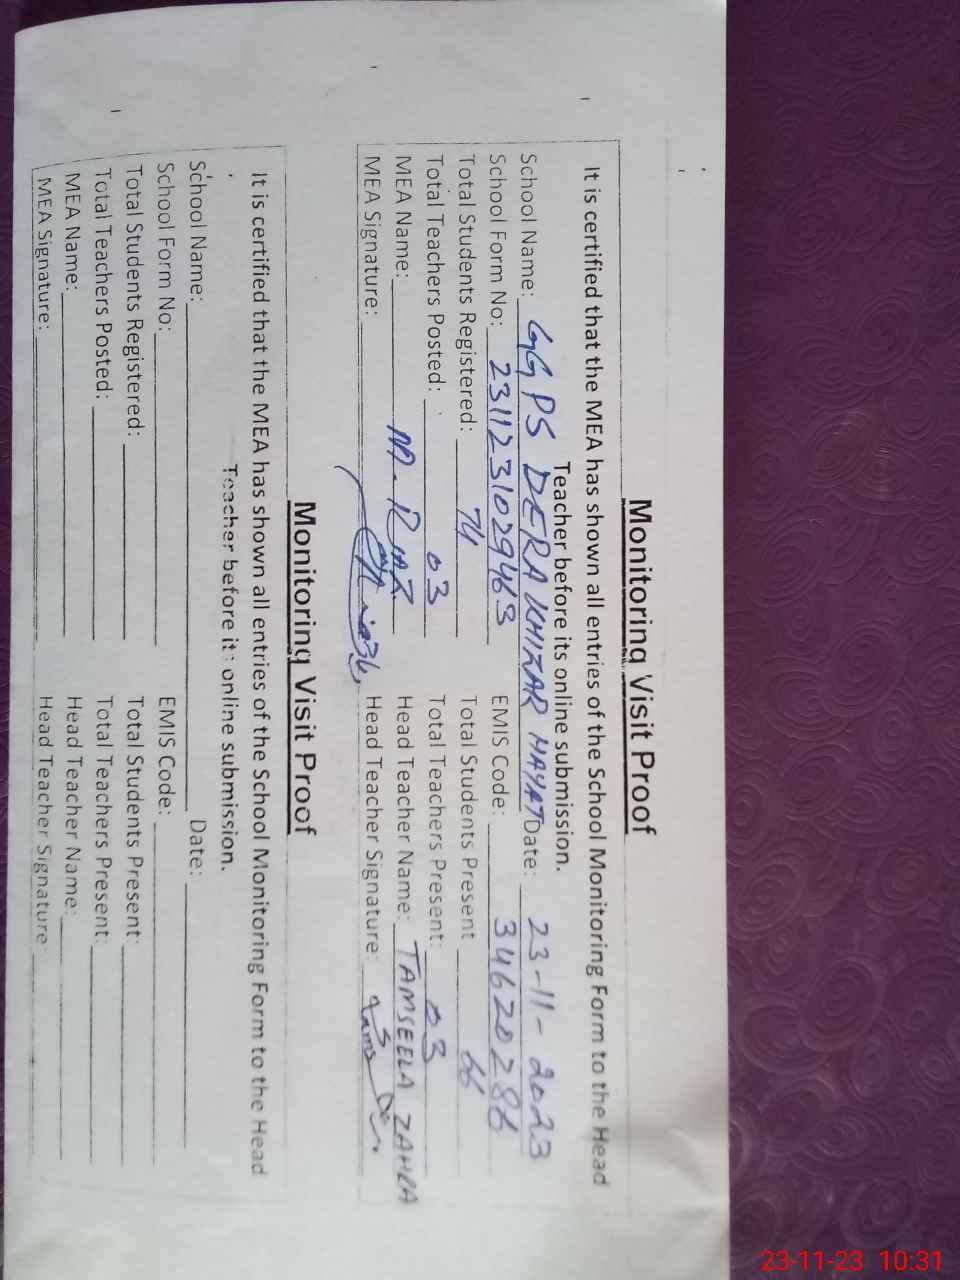 Monitoring Visit Proof
It is certified that the MEA has shown all entries of the School Monitoring Form to the Head
Teacher before its online submission.
School Name: GGPS DERA KHIZAR HAYAT Date: 23-11-2023
School Form No: 2311231029463 EMIS Code: 34620286
Total Students Registered: 74 Total Students Present 66
Total Teachers Posted: 03 Total Teachers Present: 03
MEA Name: M. RIAZ Head Teacher Name: TAMSEELA ZAHRA
MEA Signature: Head Teacher Signature:
Monitoring Visit Proof
It is certified that the MEA has shown all entries of the School Monitoring Form to the Head
Teacher before its online submission.
School Name: Date:
School Form No: EMIS Code:
Total Students Registered: Total Students Present:
Total Teachers Posted: Total Teachers Present:
MEA Name: Head Teacher Name:
MEA Signature: Head Teacher Signature:
23-11-23 10:31